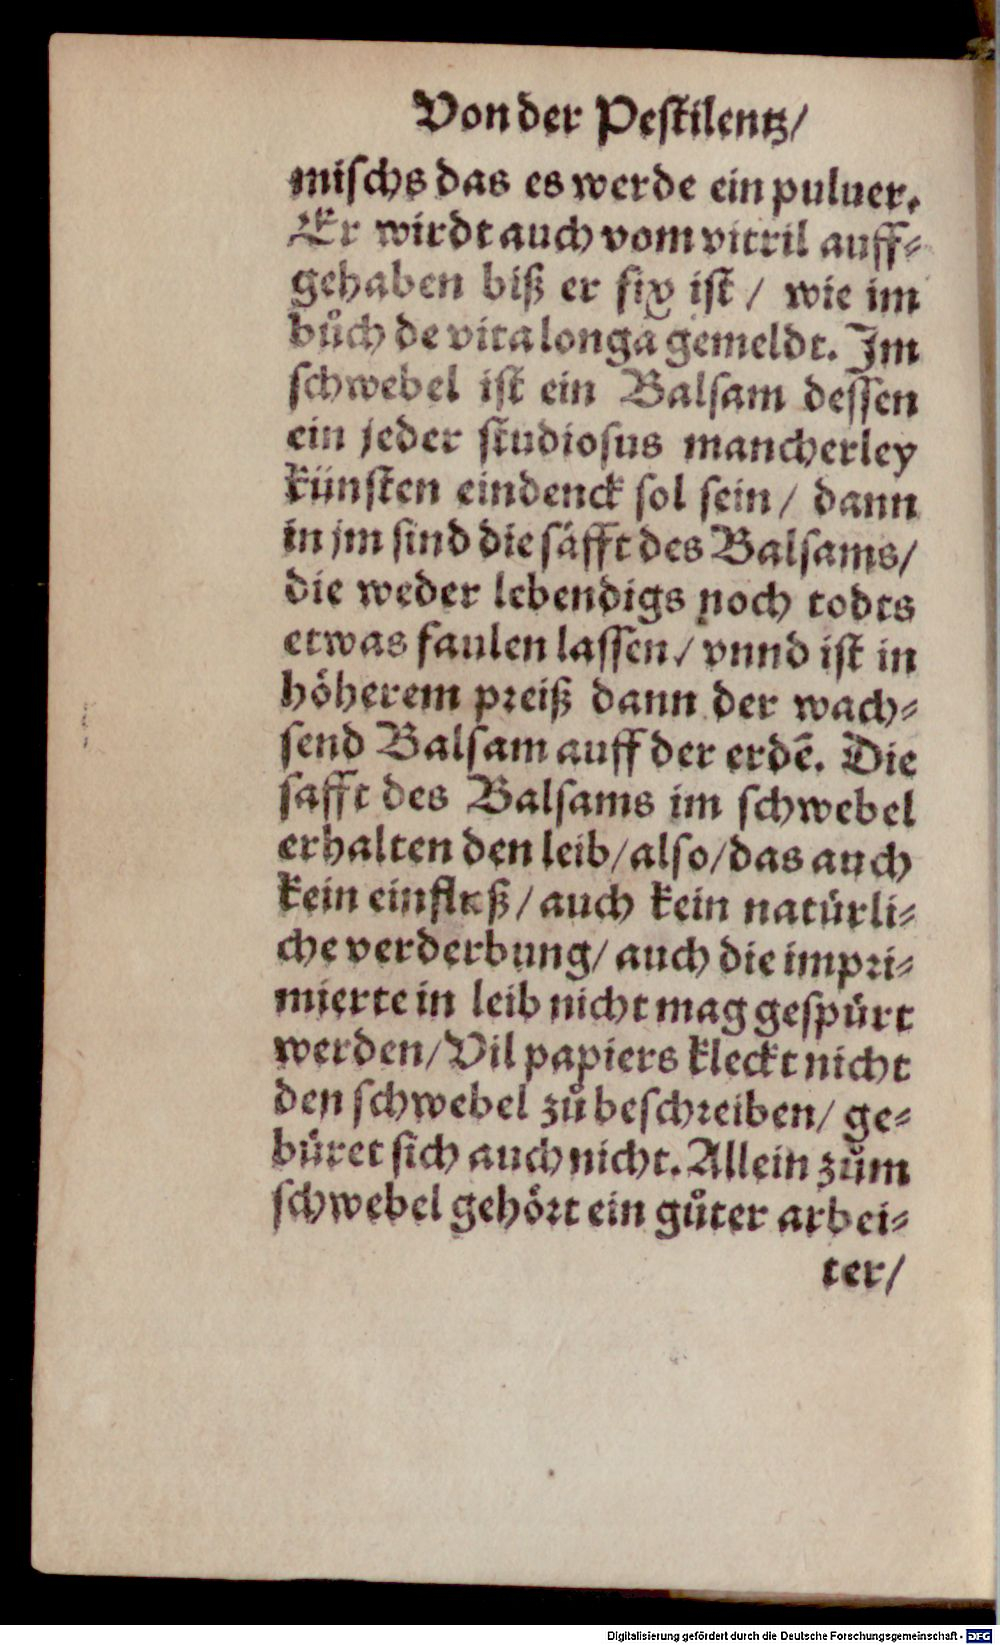 Von der Pestilentz/
mischs das es werde ein puluer.
Er wirdt auch vom vitril auff-
gehaben biß er fix ist / wie im
bůch de vita longa gemeldt. Im
schwebel ist ein Balsam dessen
ein jeder studiosus mancherley
künsten eindenck sol sein / dann
in jm sind die säfft des Balsams/
die weder lebendigs noch todts
etwas faulen lassen / vnnd ist in
höherem preiß dann der wach-
send Balsam auff der erdẽ. Die
safft des Balsams im schwebel
erhalten den leib/also/das auch
kein einfluß/auch kein natürli-
che verderbung/auch die impri-
mierte in leib nicht mag gespürt
werden/Vil papiers kleckt nicht
den schwebel zů beschreiben/ ge-
büret sich auch nicht. Allein zům
schwebel gehört ein gůter arbei-
ter/
Digitalisierung gefördert durch die Deutsche Forschungsgemeinschaft - DFG